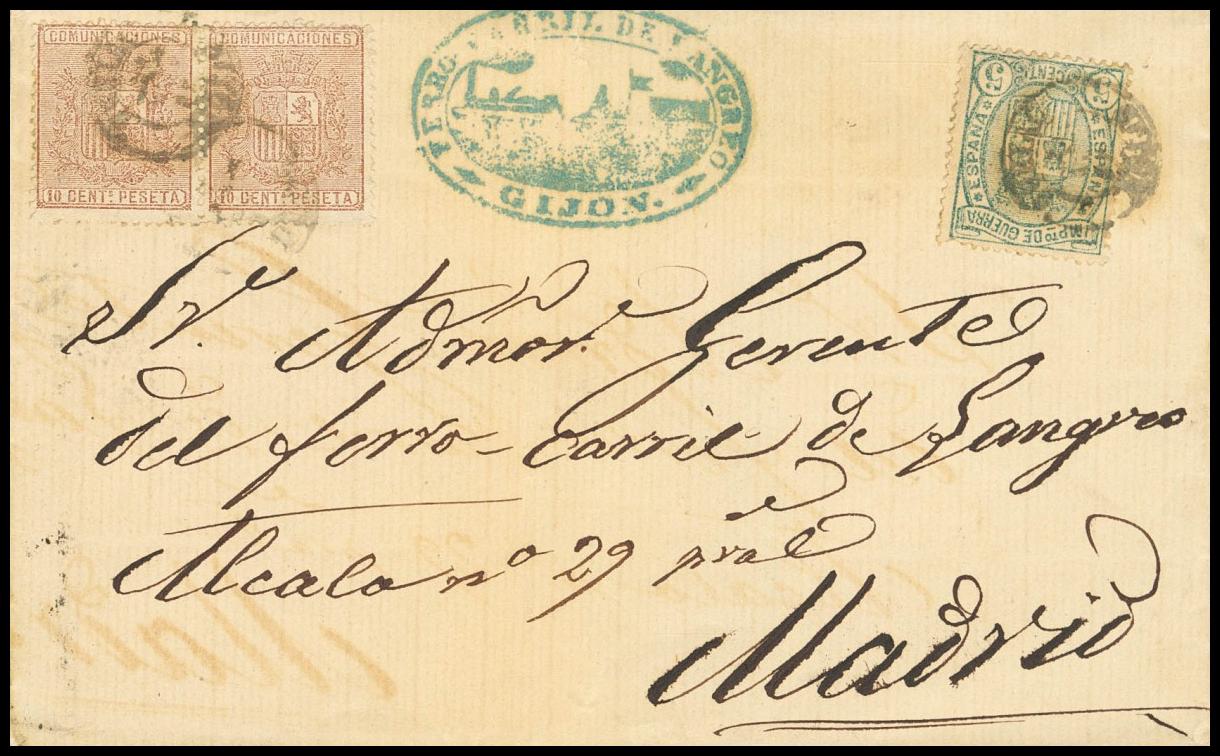 COMUNICACIONES
10 CENT.s PESETA
COMUNICACIONES
10 CENT.s PESETA
FERRO-CARRIL DE LANGREO
GIJON.
5 CENTs 5
ESPAÑA
ESPAÑA
IMPTO DE GUERRA
Sr. Admor. Gerente
del ferro-carril de Langreo
Alcala nº 29 pral
Madrid